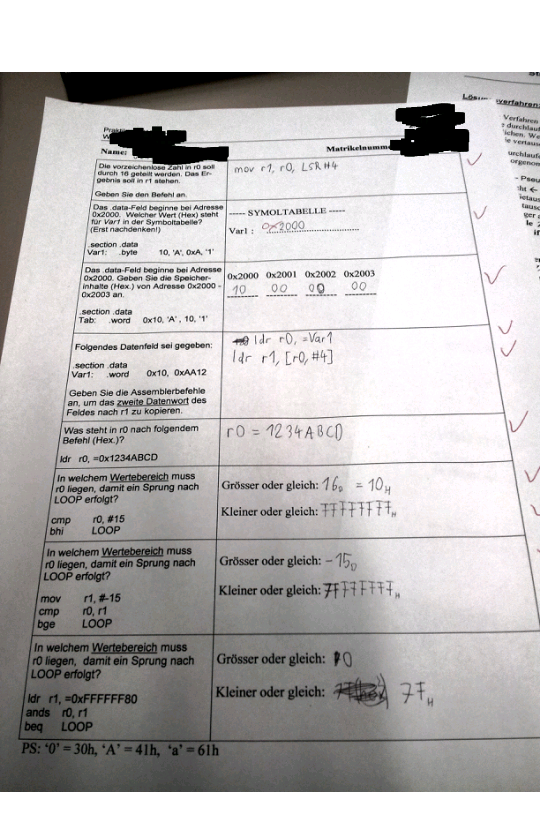 Name:
Matrikelnumme
Die vorzeichenlose Zahl in r0 soll
durch 16 geteilt werden. Das Er-
gebnis soll in r1 stehen.
Geben Sie den Befehl an.
mov r1, r0, LSR #4
Das .data-Feld beginne bei Adresse
0x2000. Welcher Wert (Hex) steht
für Var1 in der Symboltabelle?
(Erst nachdenken!)
.section .data
Var1: .byte 10, 'A', 0xA, '1'
----- SYMOLTABELLE -----
Var1 : 0x2000
Das .data-Feld beginne bei Adresse
0x2000. Geben Sie die Speicher-
inhalte (Hex.) von Adresse 0x2000 -
0x2003 an.
.section .data
Tab: .word 0x10, 'A' , 10, '1'
0x2000 0x2001 0x2002 0x2003
10 00 00 00
Folgendes Datenfeld sei gegeben:
.section .data
Var1: .word 0x10, 0xAA12
Geben Sie die Assemblerbefehle
an, um das zweite Datenwort des
Feldes nach r1 zu kopieren.
ldr r0, =Var1
ldr r1, [r0, #4]
Was steht in r0 nach folgendem
Befehl (Hex.)?
ldr r0, =0x1234ABCD
r0 = 1234ABCD
In welchem Wertebereich muss
r0 liegen, damit ein Sprung nach
LOOP erfolgt?
cmp r0, #15
bhi LOOP
Grösser oder gleich: 16D = 10H
Kleiner oder gleich: FFFFFFFFH
In welchem Wertebereich muss
r0 liegen, damit ein Sprung nach
LOOP erfolgt?
mov r1, #-15
cmp r0, r1
bge LOOP
Grösser oder gleich: -15D
Kleiner oder gleich: 7FFFFFFFH
In welchem Wertebereich muss
r0 liegen, damit ein Sprung nach
LOOP erfolgt?
ldr r1, =0xFFFFFF80
ands r0, r1
beq LOOP
Grösser oder gleich: 0
Kleiner oder gleich: 7FH
PS: '0' = 30h, 'A' = 41h, 'a' = 61h